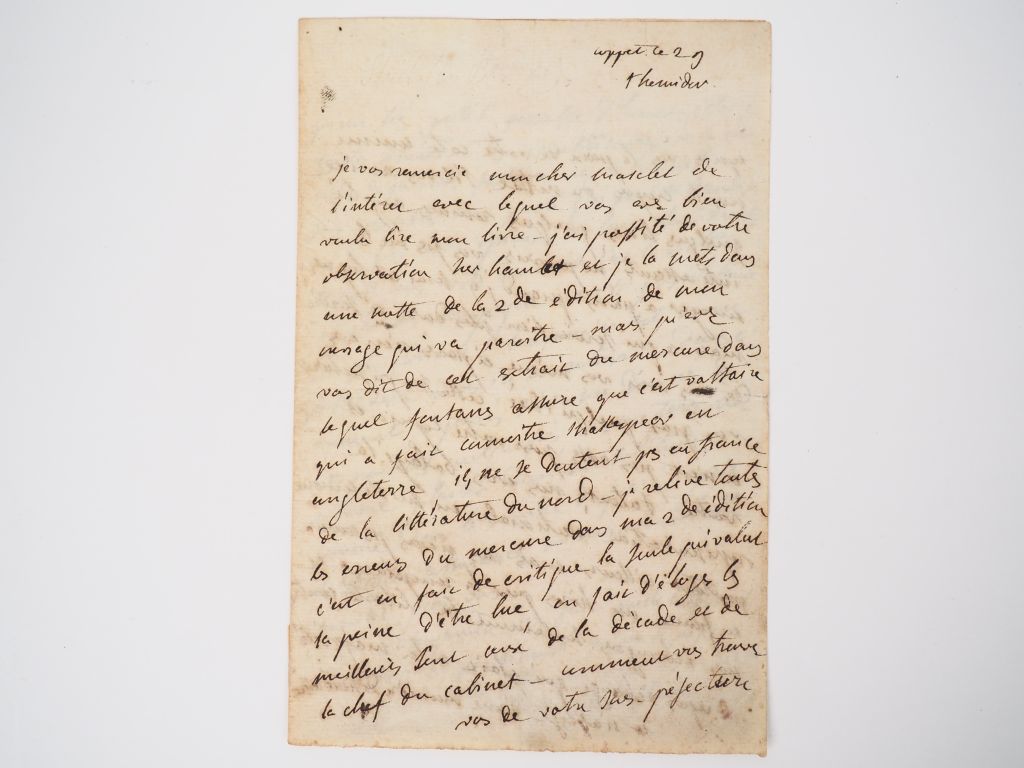 coppet le 29
thermidor
je vous remercie mon cher masclet de
l'intéret avec lequel vous avez bien
voulu lire mon livre - j'ai proffité de votre
observation sur hamlet et je la mets dans
une notte de la 2de édition de mon
ouvrage qui va paroitre - mais qu'avez
vous dit de cet extrait du mercure dans
lequel fontanes assure que c'est voltaire
qui a fait connoitre shakespear en
angleterre ils ne se doutent pas en france
de la littérature du nord - je relive toutes
les erreurs du mercure dans ma 2de édition
c'est en fait de critique la seule qui valut
la peine d'être lue en fait d'éloges les
meilleurs sont ceux de la décade et de
la clef du cabinet - comment vous trouvez
vous de votre sus-préfecture